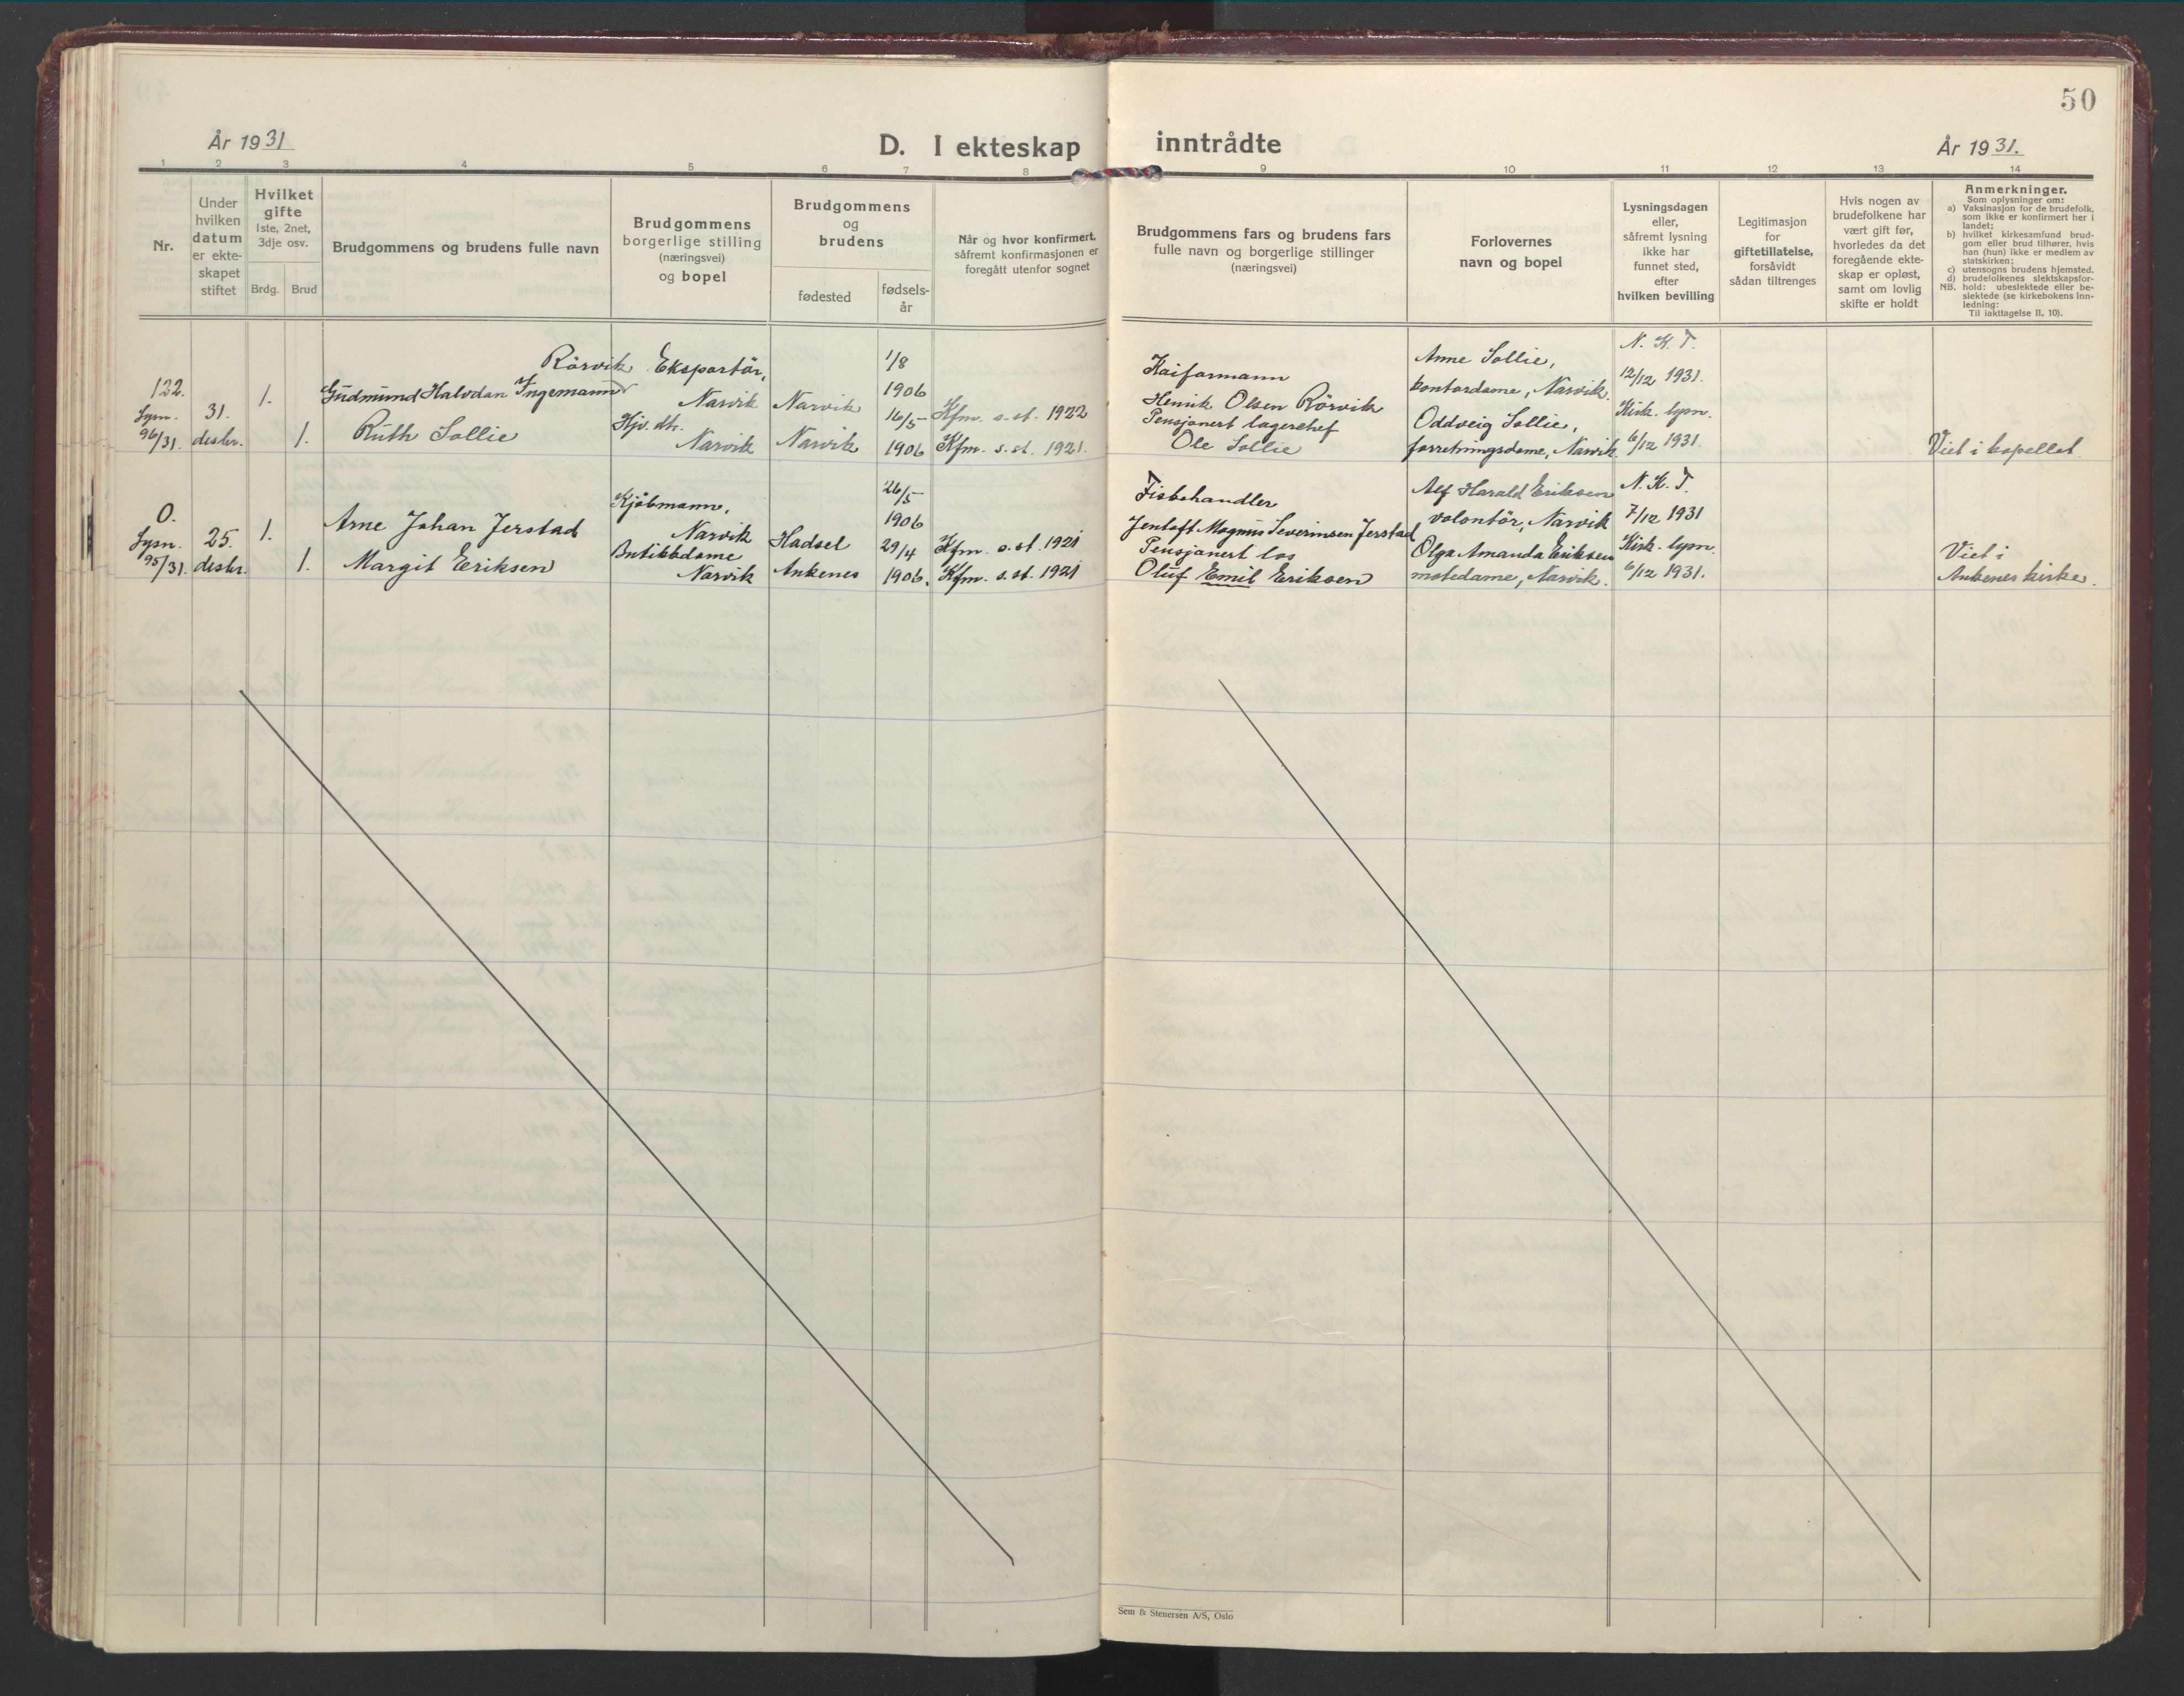 50
År 1931
D. I ekteskap inntrådte
År 1931.
1 2 3 4 5 6 7 8 9 10 11 12 13 14
Nr.
Under
hvilken
datum
er ekte-
skapet
stiftet
Hvilket
gifte
1ste, 2net,
3dje osv.
Brdg. Brud
Brudgommens og brudens fulle navn
Brudgommens
borgerlige stilling
(næringsvei)
og bopel
Brudgommens
og
brudens
fødested
fødsels-
år
Når og hvor konfirmert,
såfremt konfirmasjonen er
foregått utenfor sognet
Brudgommens fars og brudens fars
fulle navn og borgerlige stillinger
(næringsvei)
Forlovernes
navn og bopel
Lysningsdagen
eller,
såfremt lysning
ikke har
funnet sted,
efter
hvilken bevilling
Legitimasjon
for
giftetillatelse,
forsåvidt
sådan tiltrenges
Hvis nogen av
brudefolkene har
vært gift før,
hvorledes da det
foregående ekte-
skap er opløst,
samt om lovlig
skifte er holdt
Anmerkninger.
Som oplysninger om:
a) Vaksinasjon for de brudefolk,
som ikke er konfirmert her i
landet;
b) hvilket kirkesamfund brud-
gom eller brud tilhører, hvis
han (hun) ikke er medlem av
statskirken;
c) utensogns brudens hjemsted.
d) brudefolkenes slektskapsfor-
NB. hold: ubeslektede eller be-
slektede (se kirkebokens inn-
ledning:
Til iakttagelse II. 10).
122.
Lysn.
96/31.
31.
desbr.
1.
1.
Rörvik
Gudmund Halvdan Ingemann
Ruth Sollie
Eksportör,
Narvik
Hjv. dtr.
Narvik
Narvik
Narvik
1/8
1906
16/5
1906
Kfm. s. st. 1922
Kfm. s. st. 1921.
Kaiformann
Henrik Olsen Rörvik
Pensjonert lagerchef
Ole Sollie
Anne Sollie,
kontordame, Narvik.
Oddveig Sollie,
forretningsdame, Narvik.
N. K. T.
12/12 1931.
Kirk. lysn.
6/12 1931.
Viet i kapellet.
O.
Lysn.
95/31.
25.
desbr.
1.
1.
Arne Johan Jerstad
Margit Eriksen
Kjöbmann,
Narvik
Butikkdame
Narvik
Hadsel
Ankenes
26/5
1906
29/4
1906.
Kfm. s. st. 1921
Kfm. s. st. 1921
Fiskehandler
Jentoft Magnus Severinsen Jerstad
Pensjonert los
Oluf Emil Eriksen
Alf Harald Eriksen
volontör, Narvik
Olga Amanda Eriksen
motedame, Narvik.
N. K. T.
7/12 1931
Kirk. lysn.
6/12 1931.
Viet i
Ankenes kirke.
Sem & Stenersen A/S, Oslo